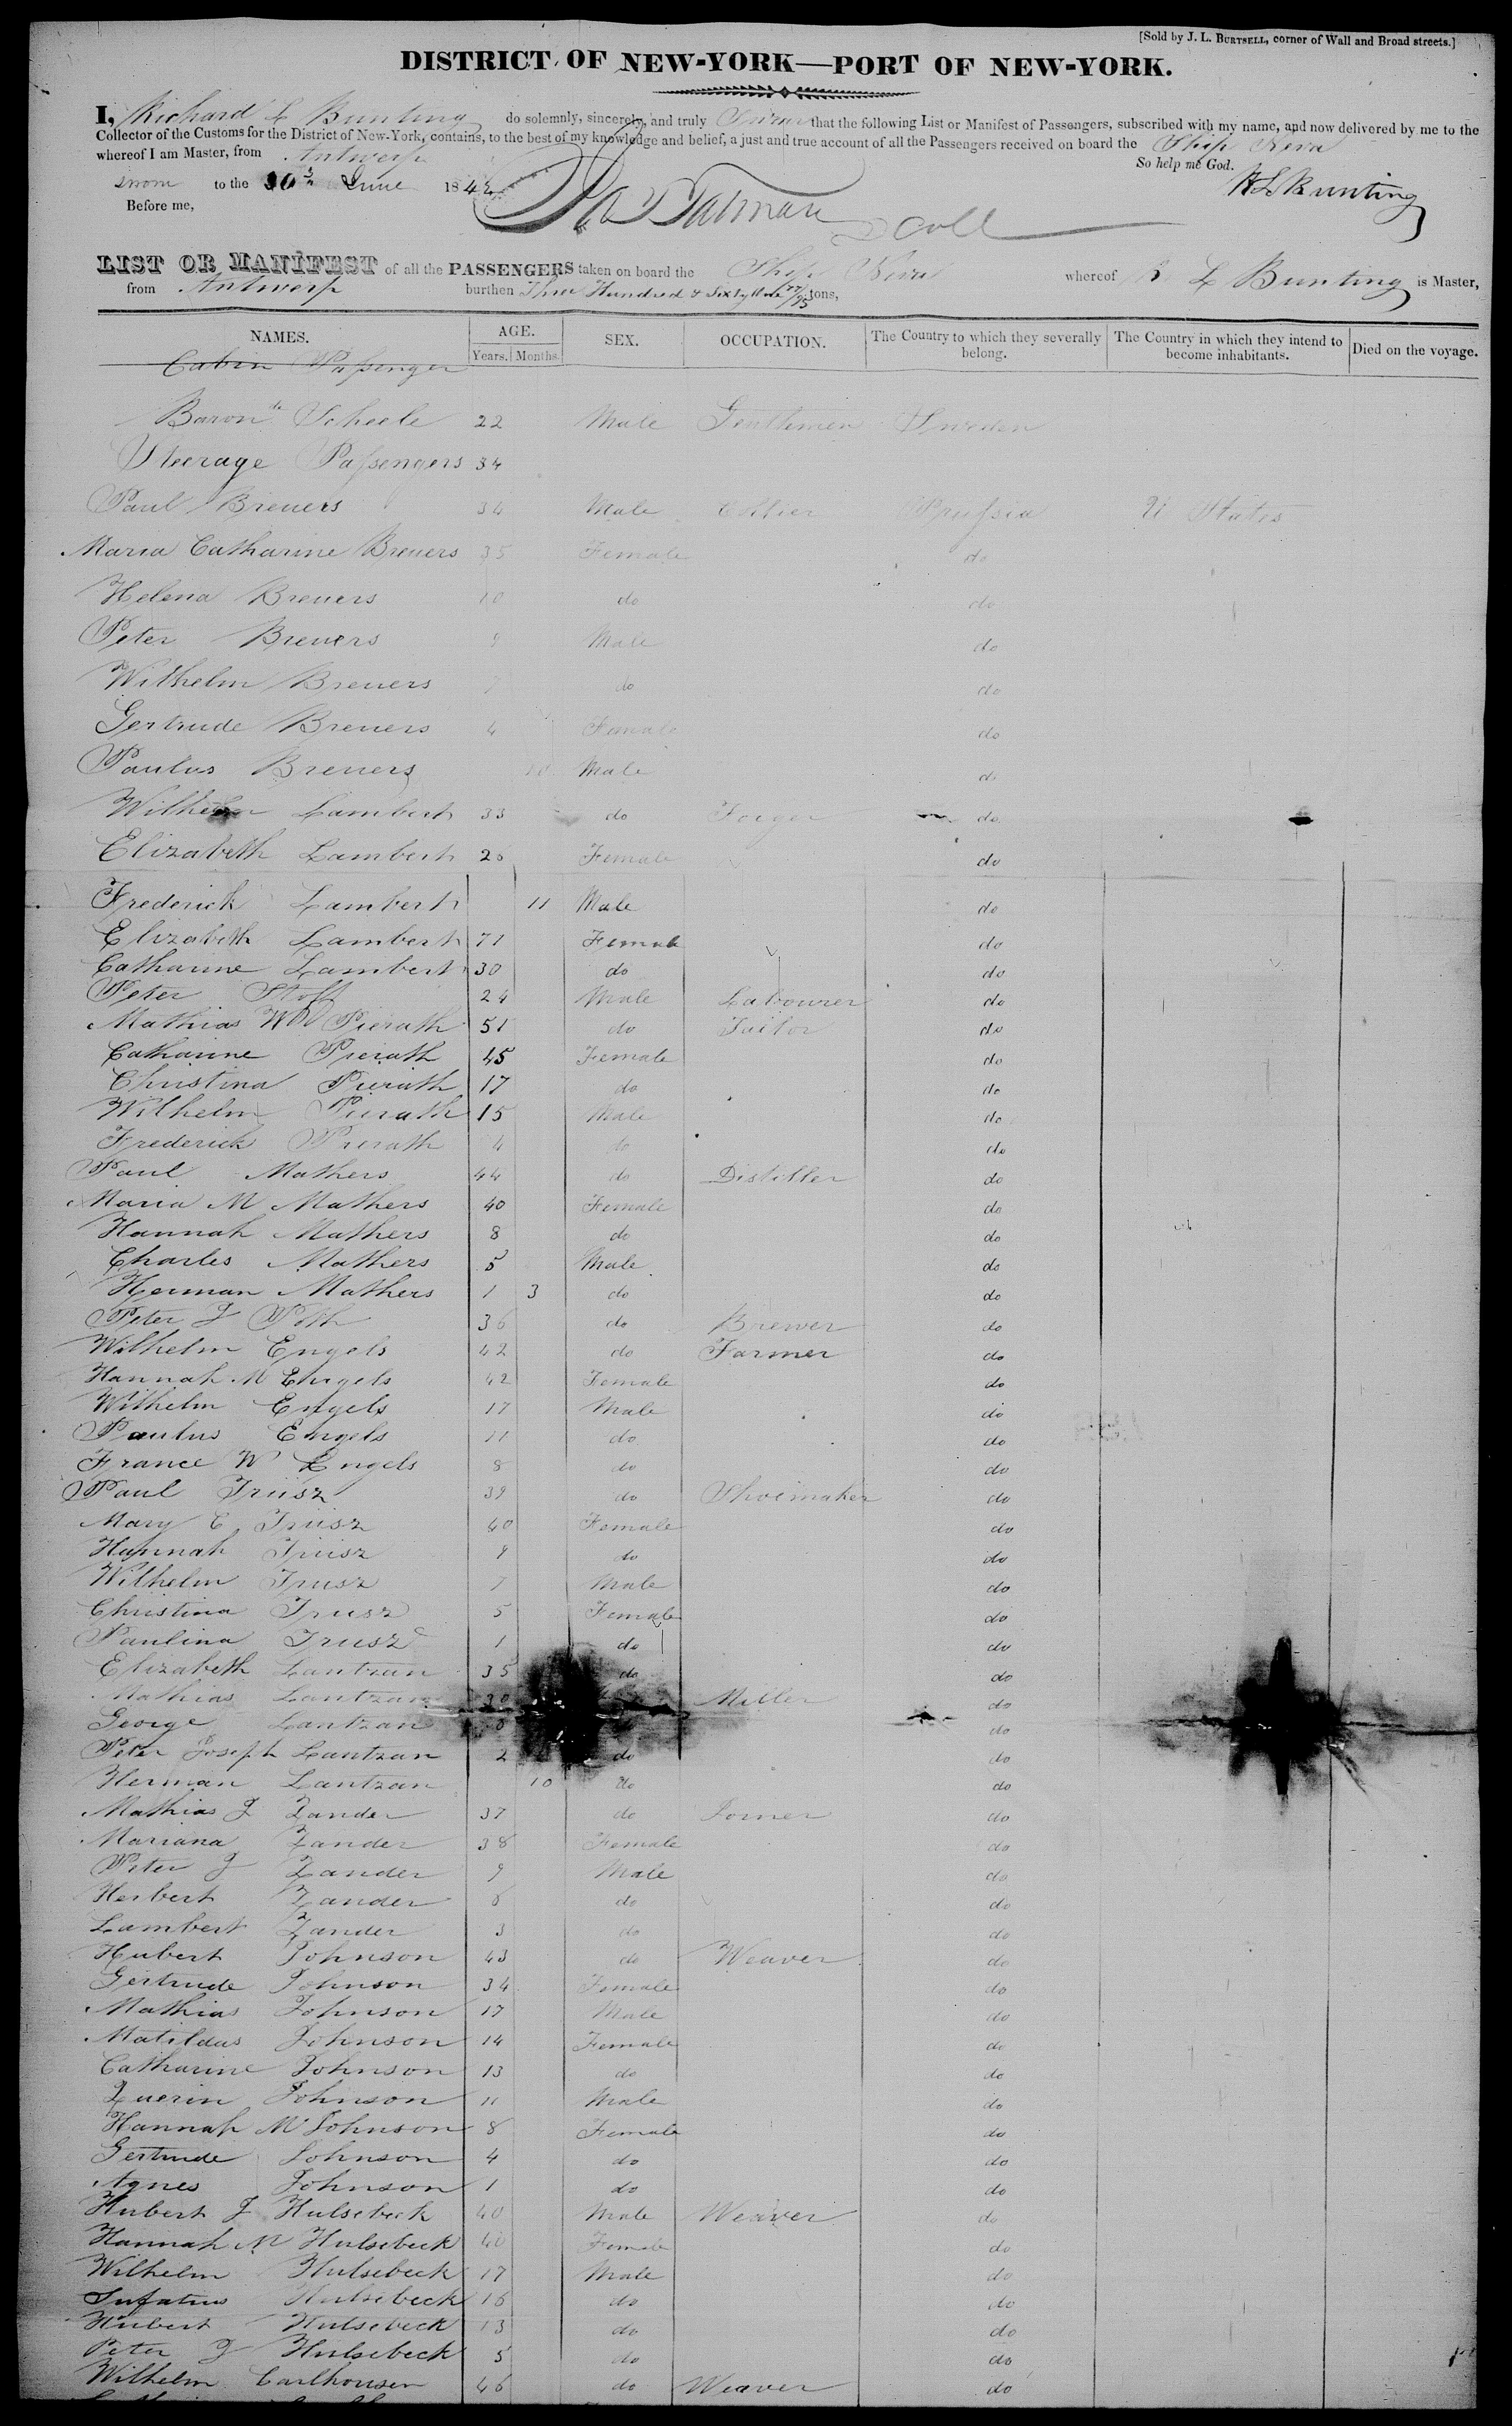 [Sold by J. L. BURTSELL, corner of Wall and Broad streets.]
DISTRICT OF NEW-YORK—PORT OF NEW-YORK.
I, Richard L Bunting do solemnly, sincerely, and truly Swear that the following List or Manifest of Passengers, subscribed with my name, and now delivered by me to the
Collector of the Customs for the District of New-York, contains, to the best of my knowledge and belief, a just and true account of all the Passengers received on board the Ship
whereof I am Master, from Antwerp
So help me God.
to the June 1842
R L Bunting
Before me,
LIST OR MANIFEST of all the PASSENGERS taken on board the Ship whereof R L Bunting is Master,
from Antwerp burthen Three Hundred & Sixty tons,
NAMES. AGE. SEX. OCCUPATION. The Country to which they severally belong. The Country in which they intend to become inhabitants. Died on the voyage.
Years. Months.
Cabin Passenger
Baron de Scheele 22 Male Gentlemen Sweden
Steerage Passengers 34
Paul Breuers 34 Male Prussia U States
Maria Catharine Breuers 35 Female do
Helena Breuers 10 do do
Peter Breuers 9 Male do
Wilhelm Breuers 7 do do
Gertrude Breuers 4 Female do
Paulus Breuers 10 Male do
Wilhelm Lambert 33 do do
Elizabeth Lambert 26 Female do
Frederick Lambert 11 Male do
Elizabeth Lambert 71 Female do
Catharine Lambert 30 do do
Peter Stoff 24 Male Labourer do
Mathias Wm Pierath 51 do Tailor do
Catharine Pierath 45 Female do
Christina Pierath 17 do do
Wilhelm Pierath 15 Male do
Frederick Pierath 4 do do
Paul Mathers 44 do Distiller do
Maria M Mathers 40 Female do
Hannah Mathers 8 do do
Charles Mathers 5 Male do
Herman Mathers 1 3 do do
Peter J Poth 36 do Brewer do
Wilhelm Engels 42 do Farmer do
Hannah M Engels 42 Female do
Wilhelm Engels 17 Male do
Paulus Engels 11 do do
France W Engels 8 do do
Paul Trusz 39 do Shoemaker do
Mary C Trusz 40 Female do
Hannah Trusz 9 do do
Wilhelm Trusz 7 Male do
Christina Trusz 5 Female do
Paulina Trusz 1 do do
Elizabeth Lantzan 35 do do
Mathias Lantzan 30 Miller do
George Lantzan do
Peter Joseph Lantzan 2 do do
Herman Lantzan 10 do do
Mathias J Zander 37 do Joiner do
Mariana Zander 38 Female do
Peter J Zander 9 Male do
Herbert Zander 6 do do
Lambert Zander 3 do do
Hubert Johnson 43 do Weaver do
Gertrude Johnson 34 Female do
Mathias Johnson 17 Male do
Matildas Johnson 14 Female do
Catharine Johnson 13 do do
Querin Johnson 11 Male do
Hannah M Johnson 8 Female do
Gertrude Johnson 4 do do
Agnes Johnson 1 do do
Hubert J Hulsebeck 40 Male Weaver do
Hannah M Hulsebeck 40 Female do
Wilhelm Hulsebeck 17 Male do
Hulsebeck 16 do do
Hubert Hulsebeck 13 do do
Peter J Hulsebeck 5 do do
Wilhelm Carlhousen 46 do Weaver do